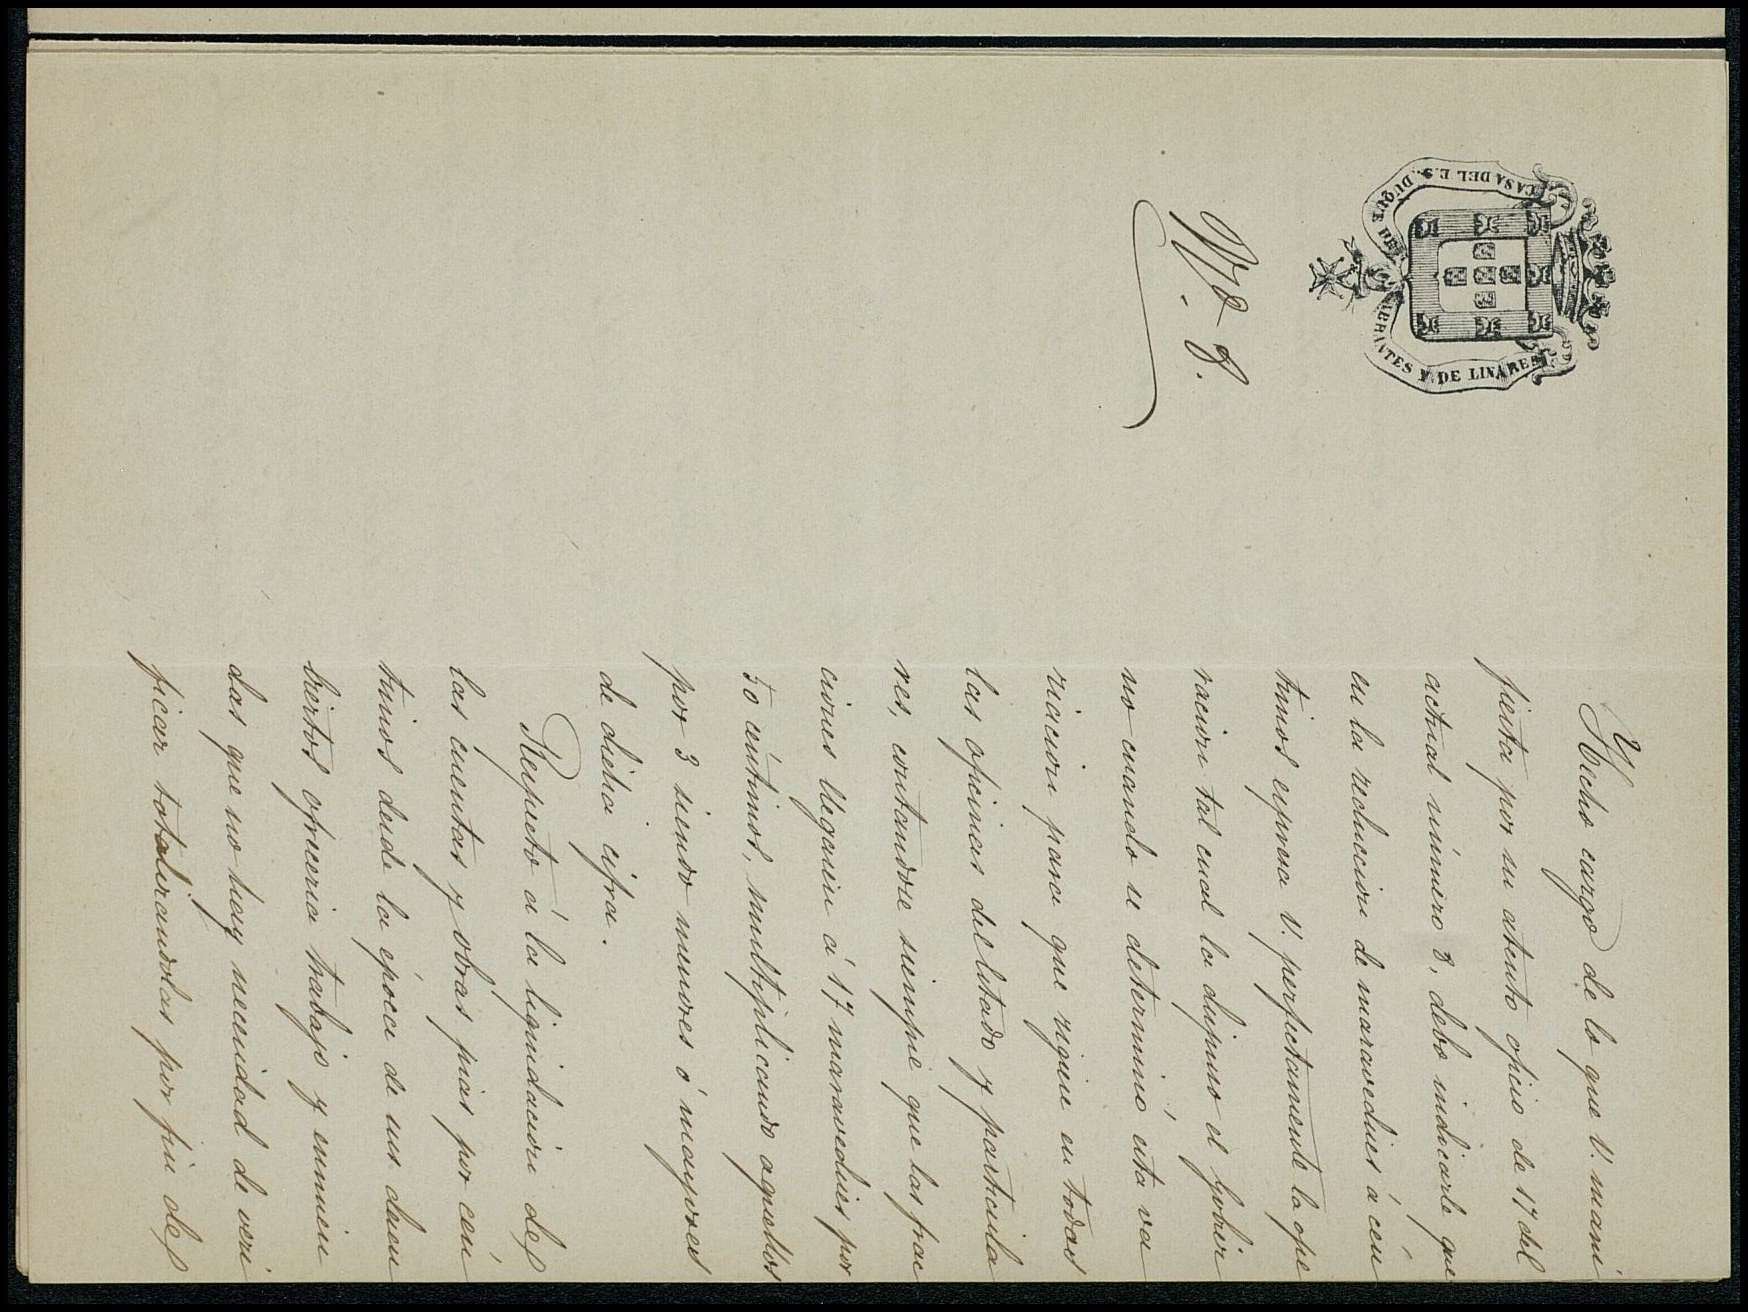 CASA DEL E.S. DUQUE DE ABRANTES Y DE LINARES
Hecho cargo de lo que V. mani
fiesta por su atento oficio de 17 del
actual número 8, debo indicarle que
en la reduccion de maravedises á cén
timos espresa V. perfectamente la ope
racion tal cual la dispuso el Gobier
no cuando se determinó esta va
riacion para que rigiese en todas
las oficinas del Estado y particula
res, contandose siempre que las frac
ciones lleguen á 17 maravedises por
50 céntimos, multiplicando aquellos
por 3 siendo menores ó mayores
de dicha cifra.
Respecto á la liquidacion de
las cuentas y obras pias por cén
timos desde la época de sus descu
biertos ofreceria trabajo y enmien
das que no hay necesidad de veri
ficar totalizandolas por fin de